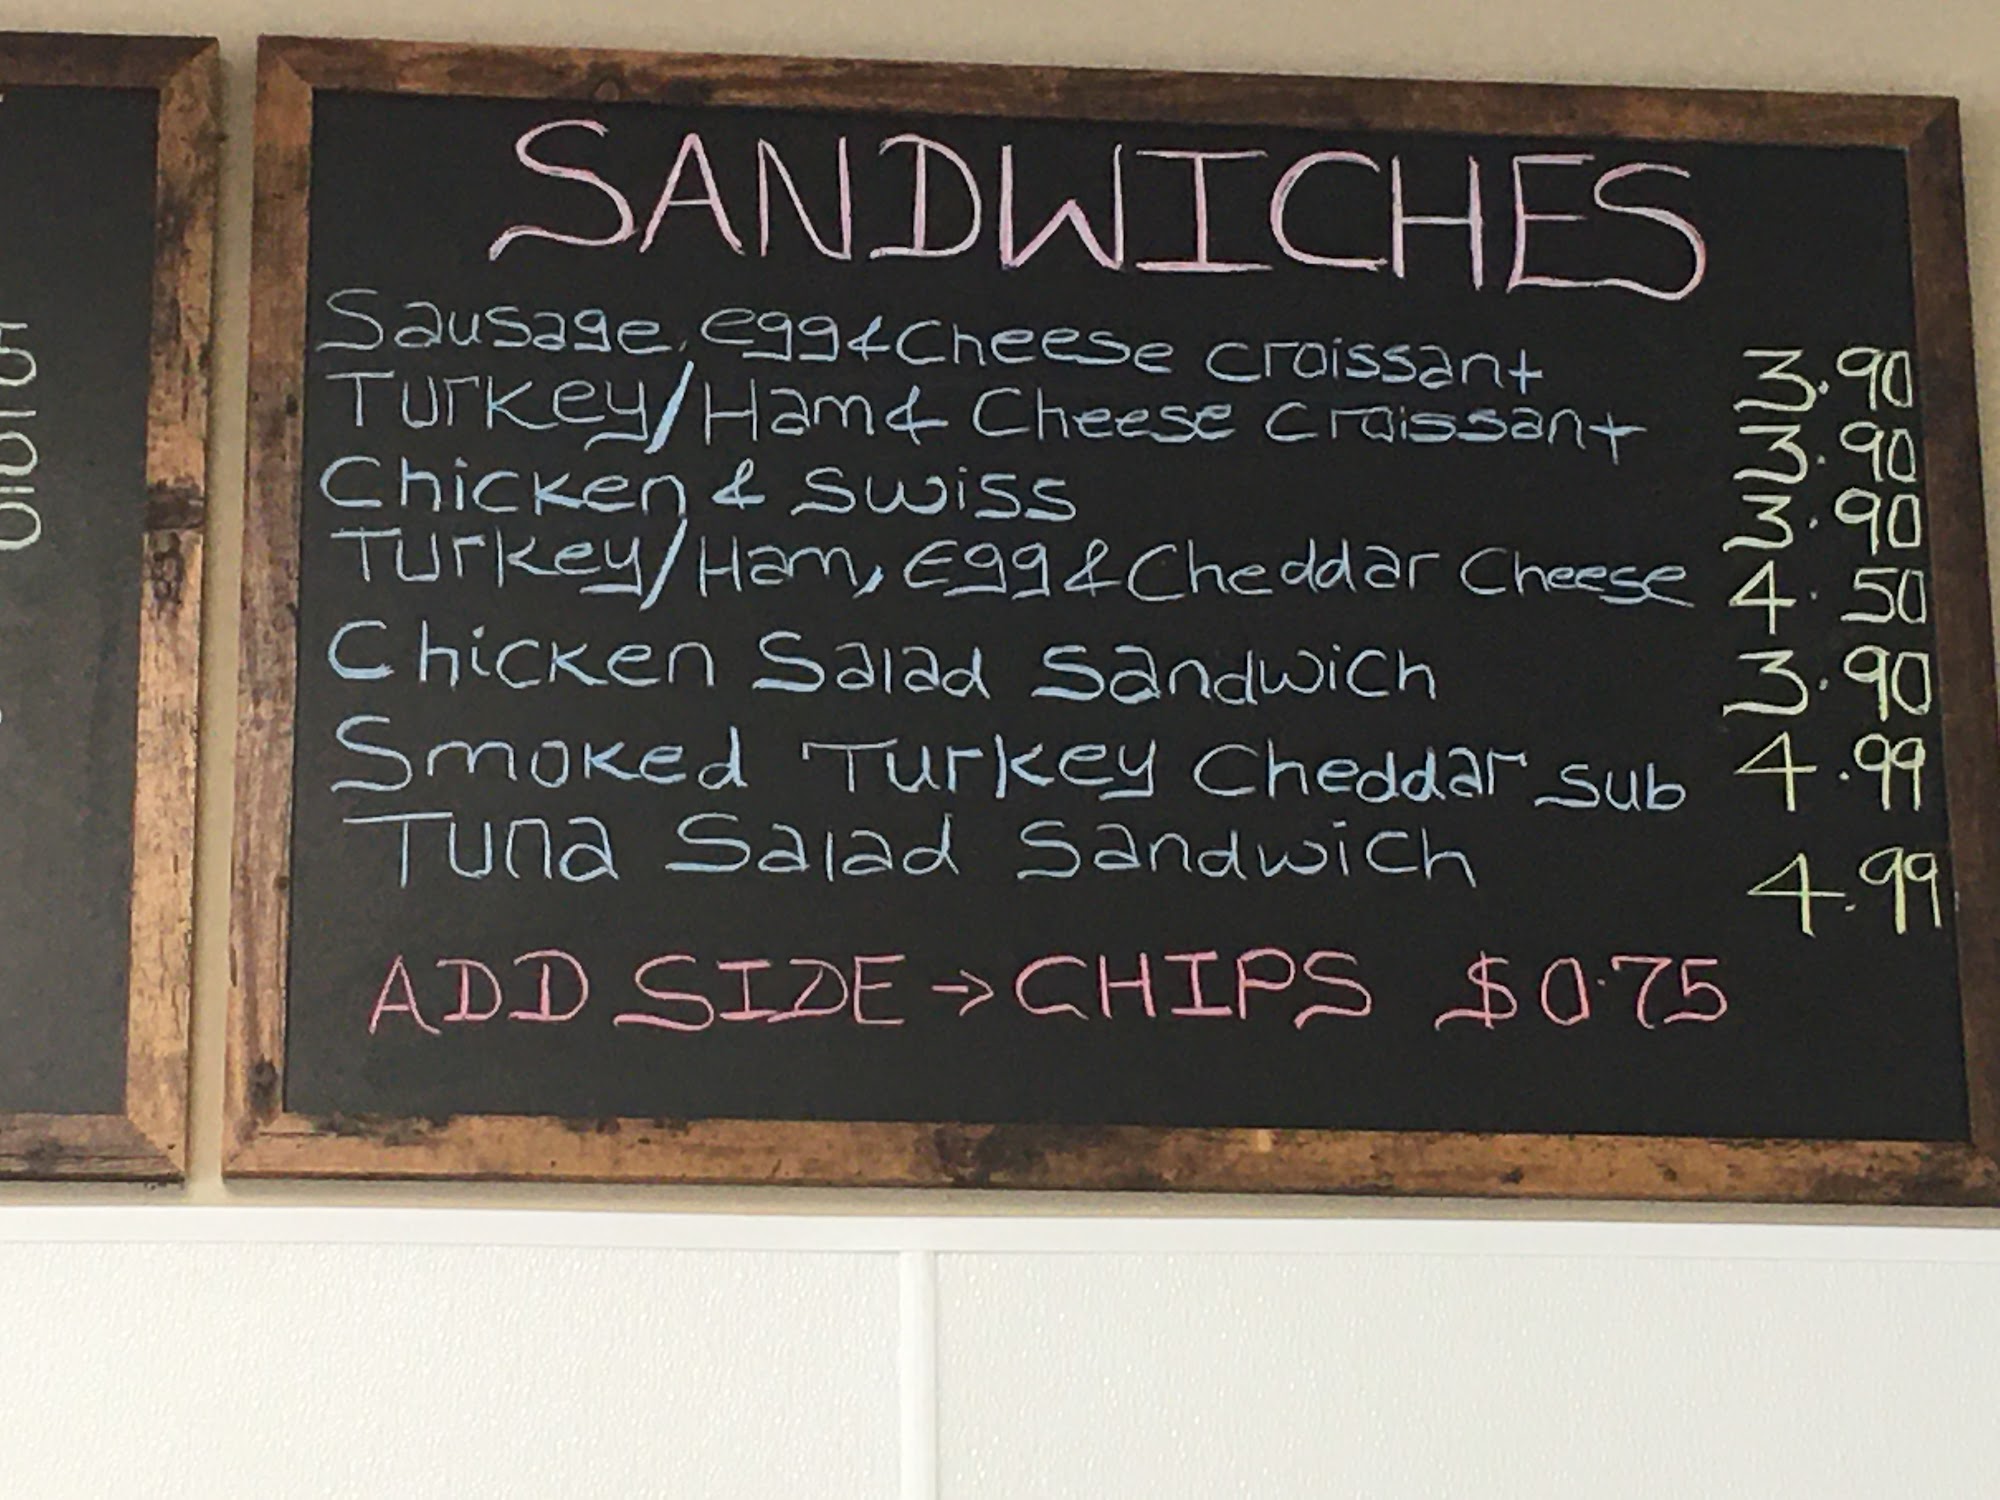 SANDWICHES
Sausage, egg & Cheese croissant 3.90
Turkey/Ham & Cheese croissant 3.90
Chicken & swiss 3.90
Turkey/Ham, Egg & Cheddar Cheese 4.50
Chicken Salad Sandwich 3.90
Smoked Turkey Cheddar sub 4.99
Tuna Salad Sandwich 4.99
ADD SIDE → CHIPS $0.75